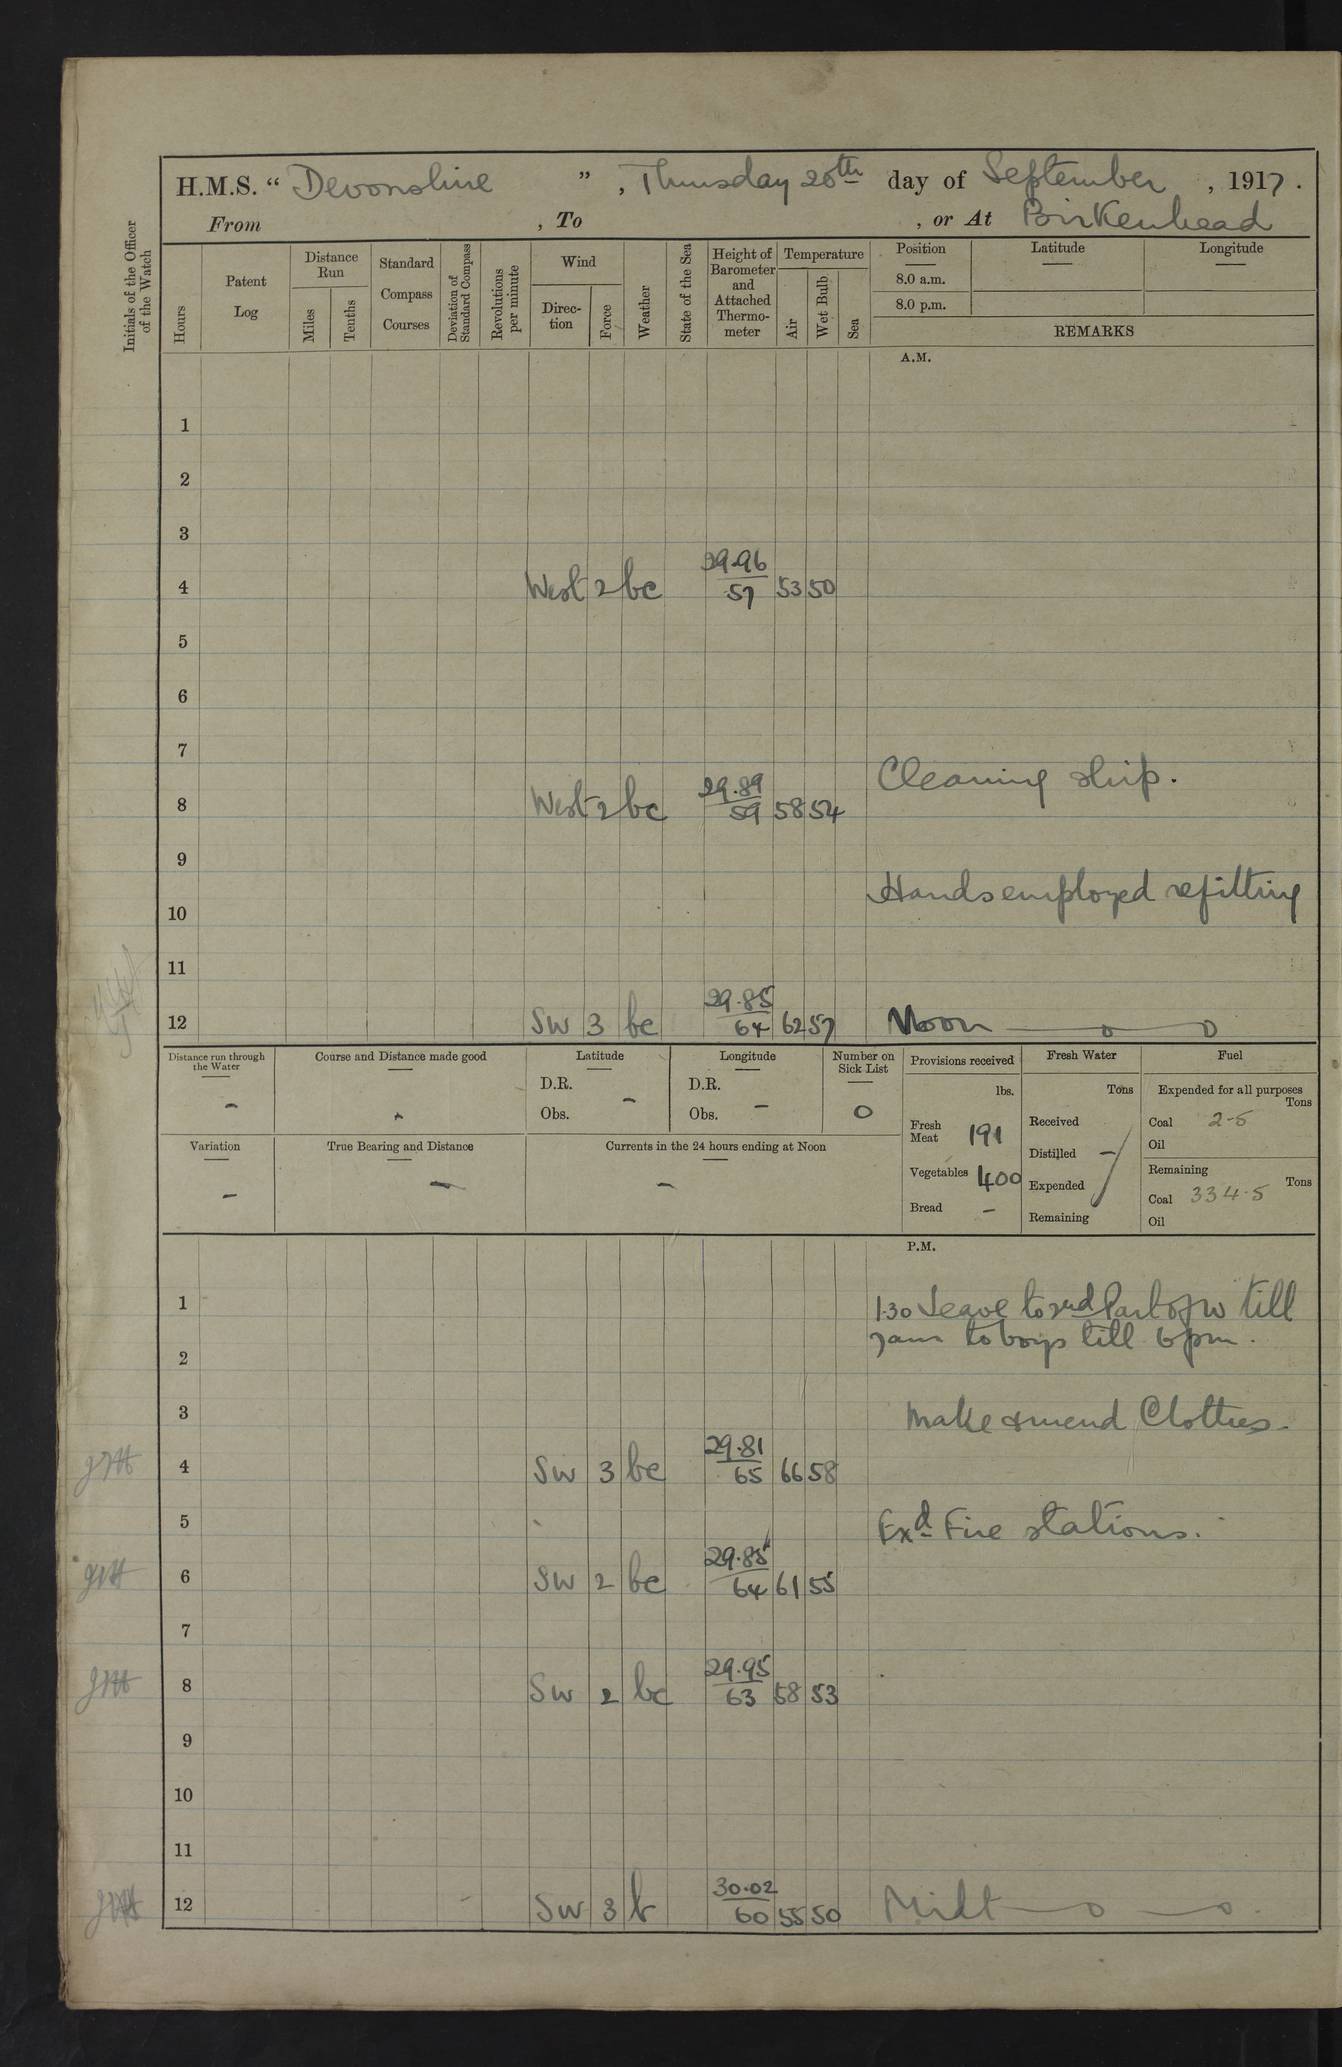 H.M.S. “ Devonshire ”, Thursday 20th day of September, 1917.
From , To , or At Birkenhead
Initials of the Officer of the Watch
Hours
Patent Log
Distance Run
Miles
Tenths
Standard Compass Courses
Deviation of Standard Compass
Revolutions per minute
Wind
Direc-tion
Force
Weather
State of the Sea
Height of Barometer and Attached Thermo-meter
Temperature
Air
Wet Bulb
Sea
Position
8.0 a.m.
8.0 p.m.
Latitude
Longitude
REMARKS
A.M.
1
2
3
4 West 2 bc 29.96 57 53 50
5
6
7
Cleaning ship.
8 West 2 bc 29.89 59 58 54
9
Hands employed refitting
10
11
12 SW 3 bc 29.85 64 62 57 Noon
Distance run through the Water
-
Course and Distance made good
-
Latitude
D.R.
Obs. -
Longitude
D.R.
Obs. -
Number on Sick List
0
Variation
-
True Bearing and Distance
-
Currents in the 24 hours ending at Noon
-
Provisions received
lbs.
Fresh Meat 191
Vegetables 400
Bread -
Fresh Water
Tons
Received
Distilled -
Expended
Remaining
Fuel
Expended for all purposes
Tons
Coal 2-5
Oil
Remaining
Tons
Coal 334.5
Oil
P.M.
1 1.30 Leave to 2nd Part of W till
7am to boys till 6pm.
2
3 Make & mend Clothes.
4 SW 3 bc 29.81 65 66 58
5 Exd Fire stations.
6 SW 2 bc 29.85 64 61 55
7
8 SW 2 bc 29.95 63 58 53
9
10
11
12 SW 3 b 30.02 60 55 50 Midt